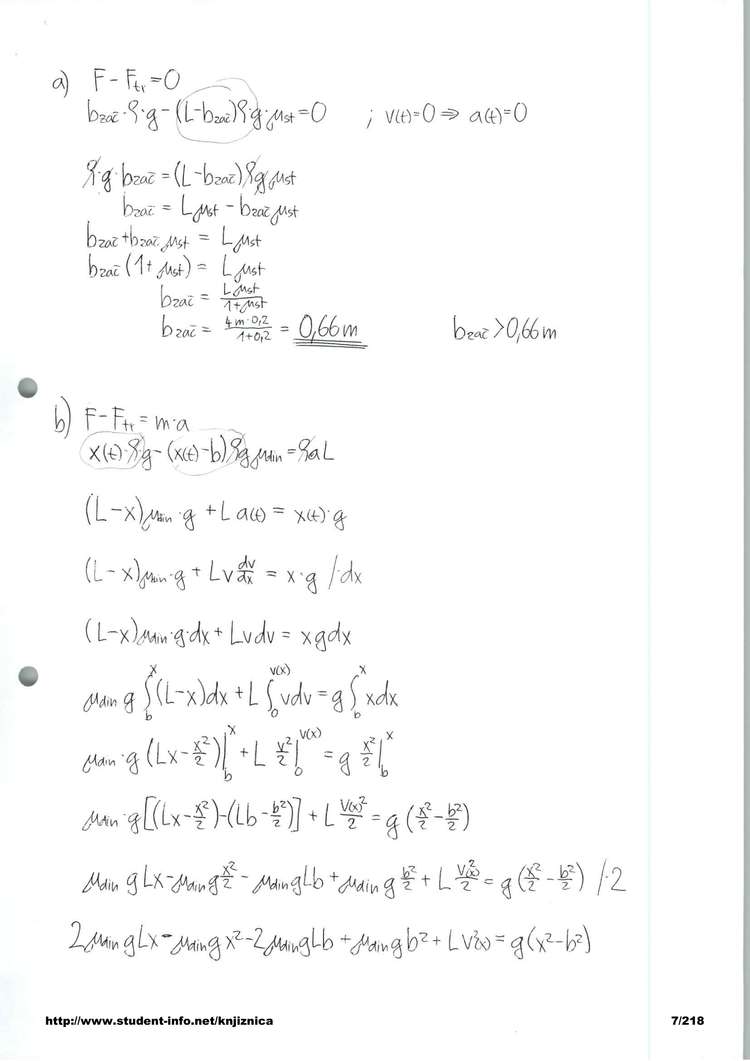 a) F - Ftr = 0
bzač·ρ·g - (L-bzač)ρ·g·μst = 0 ; v(t)=0 ⇒ a(t)=0
ρ·g·bzač = (L-bzač)ρgμst
bzač = Lμst - bzačμst
bzač+bzač·μst = Lμst
bzač(1+μst) = Lμst
bzač = Lμst/1+μst
bzač = 4m·0,2/1+0,2 = 0,66m bzač>0,66m
b) F-Ftr = m·a
x(t)·ρ·g-(x(t)-b)ρgμdin = ρaL
(L-x)μdin·g + La(t) = x(t)·g
(L-x)μdin·g + Lv dv/dx = x·g /·dx
(L-x)μdin·g·dx + Lvdv = xgdx
μdin g ∫_b^x (L-x)dx + L ∫_0^v(x) vdv = g ∫_b^x xdx
μdin·g (Lx-x²/2)|_b^x + L v²/2|_0^v(x) = g x²/2|_b^x
μdin·g[(Lx-x²/2)-(Lb-b²/2)] + L v(x)²/2 = g(x²/2-b²/2)
μdin gLx-μdin g x²/2 - μdin gLb + μdin g b²/2 + L v²(x)/2 = g(x²/2-b²/2) /·2
2μdin gLx-μdin gx²-2μdin gLb+μdin gb²+Lv²(x) = g(x²-b²)
http://www.student-info.net/knjiznica 7/218